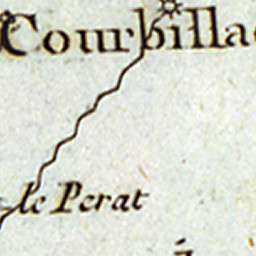 Courbilla
le Perat